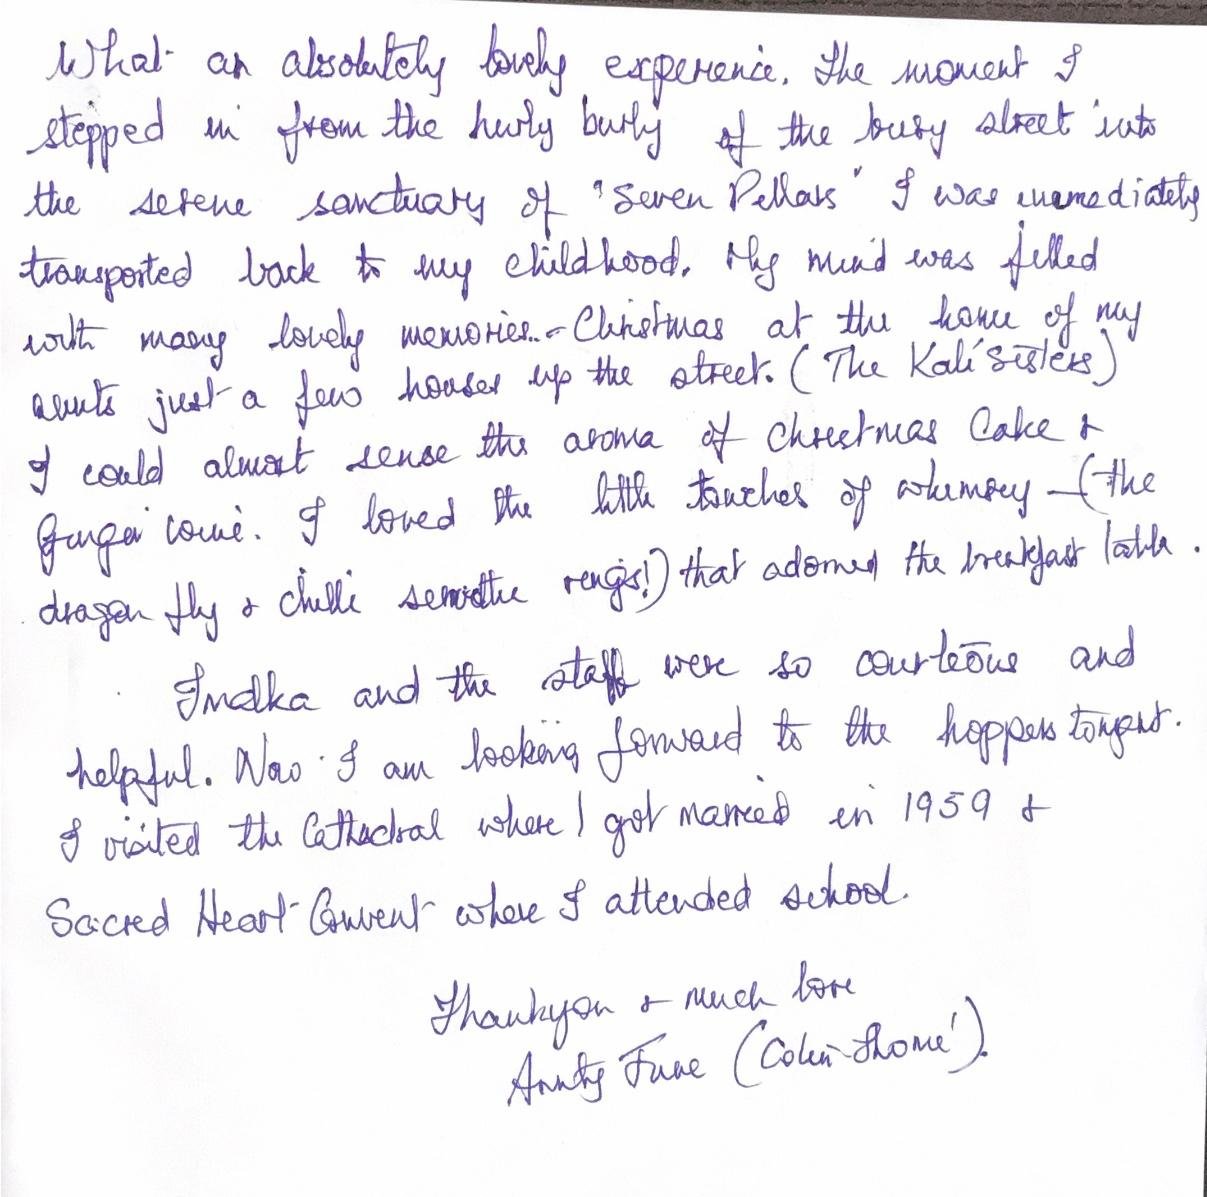 What an absolutely lovely experience. The moment I
stepped in from the hurly burly of the busy street into
the serene sanctuary of "Seven Pillars" I was immediately
transported back to my childhood. My mind was filled
with many lovely memories.. - Christmas at the home of my
aunts just a few houses up the street. (The Kali Sisters)
I could almost sense the aroma of Christmas Cake &
Ginger wine. I loved the little touches of whimsey - (the
dragon fly & chilli rings!) that adorned the breakfast table.
and the staff were so courteous and
helpful. Now I am looking forward to the hoppers tonight.
I visited the Cathedral where I got married in 1959 &
Sacred Heart Convent where I attended school.
Thankyou & much love
Aunty June (Colin-Thome').